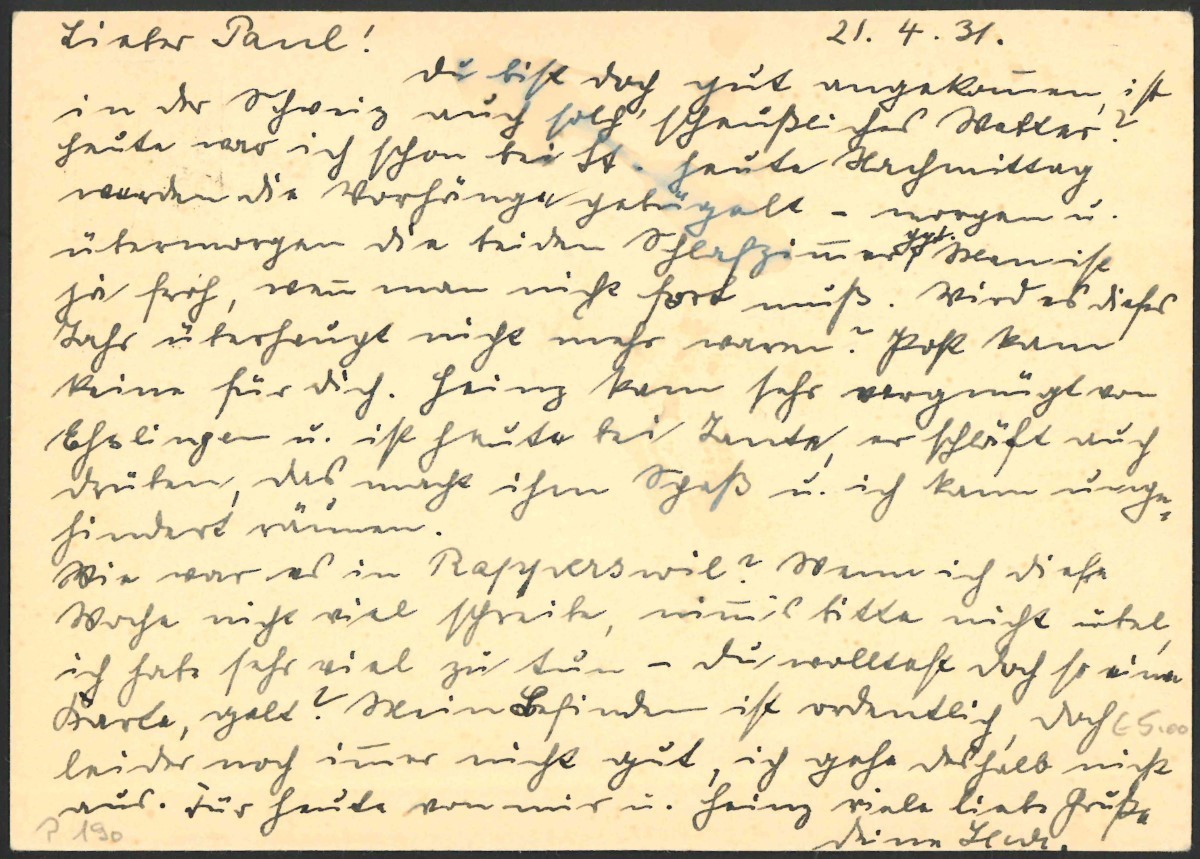 Lieber Paul! 21. 4. 31.
Du bist doch gut angekom̅en, ist
in der Schweiz auch solch scheußliches Wetter?
Heute war ich schon bei St. Heute Nachmittag
werden die Vorhänge gebügelt – morgen u.
übermorgen die beiden Schlafzim̅er gpt. Man ist
ja froh, wen̅ man nicht fort muß. Wird es dieses
Jahr überhaupt nicht mehr warm? Post kam
keine für Dich. Heinz kam sehr vergnügt von
u. ist heute bei Tante, er schläft auch
drüben, das macht ihm Spaß u. ich kann unge=
hindert räumen.
Wie war es in Rapperswil? Wenn ich diese
Woche nicht viel schreibe, nim̅s bitte nicht übel,
ich habe sehr viel zu tun – Du wolltest doch so eine
Karte, gelt? Mein Befinden ist ordentlich, doch E 5.00
leider noch im̅er nicht gut, ich gehe deshalb nicht
aus. Für heute von mir u. Heinz viele liebe Grüße
P 190 Deine